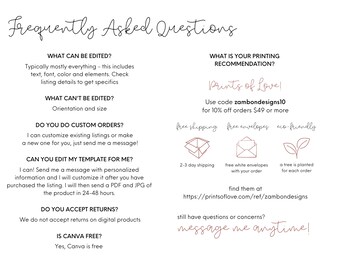 Frequently Asked Questions
WHAT CAN BE EDITED?
Typically mostly everything - this includes
text, font, color and elements. Check
listing details to get specifics
WHAT CAN'T BE EDITED?
Orientation and size
DO YOU DO CUSTOM ORDERS?
I can customize existing listings or make
a new one for you, just send me a message!
CAN YOU EDIT MY TEMPLATE FOR ME?
I can! Send me a message with personalized
information and I will customize it after you have
purchased the listing. I will then send a PDF and JPG of
the product in 24-48 hours.
DO YOU ACCEPT RETURNS?
We do not accept returns on digital products
IS CANVA FREE?
Yes, Canva is free
WHAT IS YOUR PRINTING
RECOMMENDATION?
Prints of Love!
Use code zambondesigns10
for 10% off orders $49 or more
free shipping
free envelopes
eco-friendly
2-3 day shipping
free white envelopes
with your order
a tree is planted
for each order
find them at
https://printsoflove.com/ref/zambondesigns
still have questions or concerns?
message me anytime!